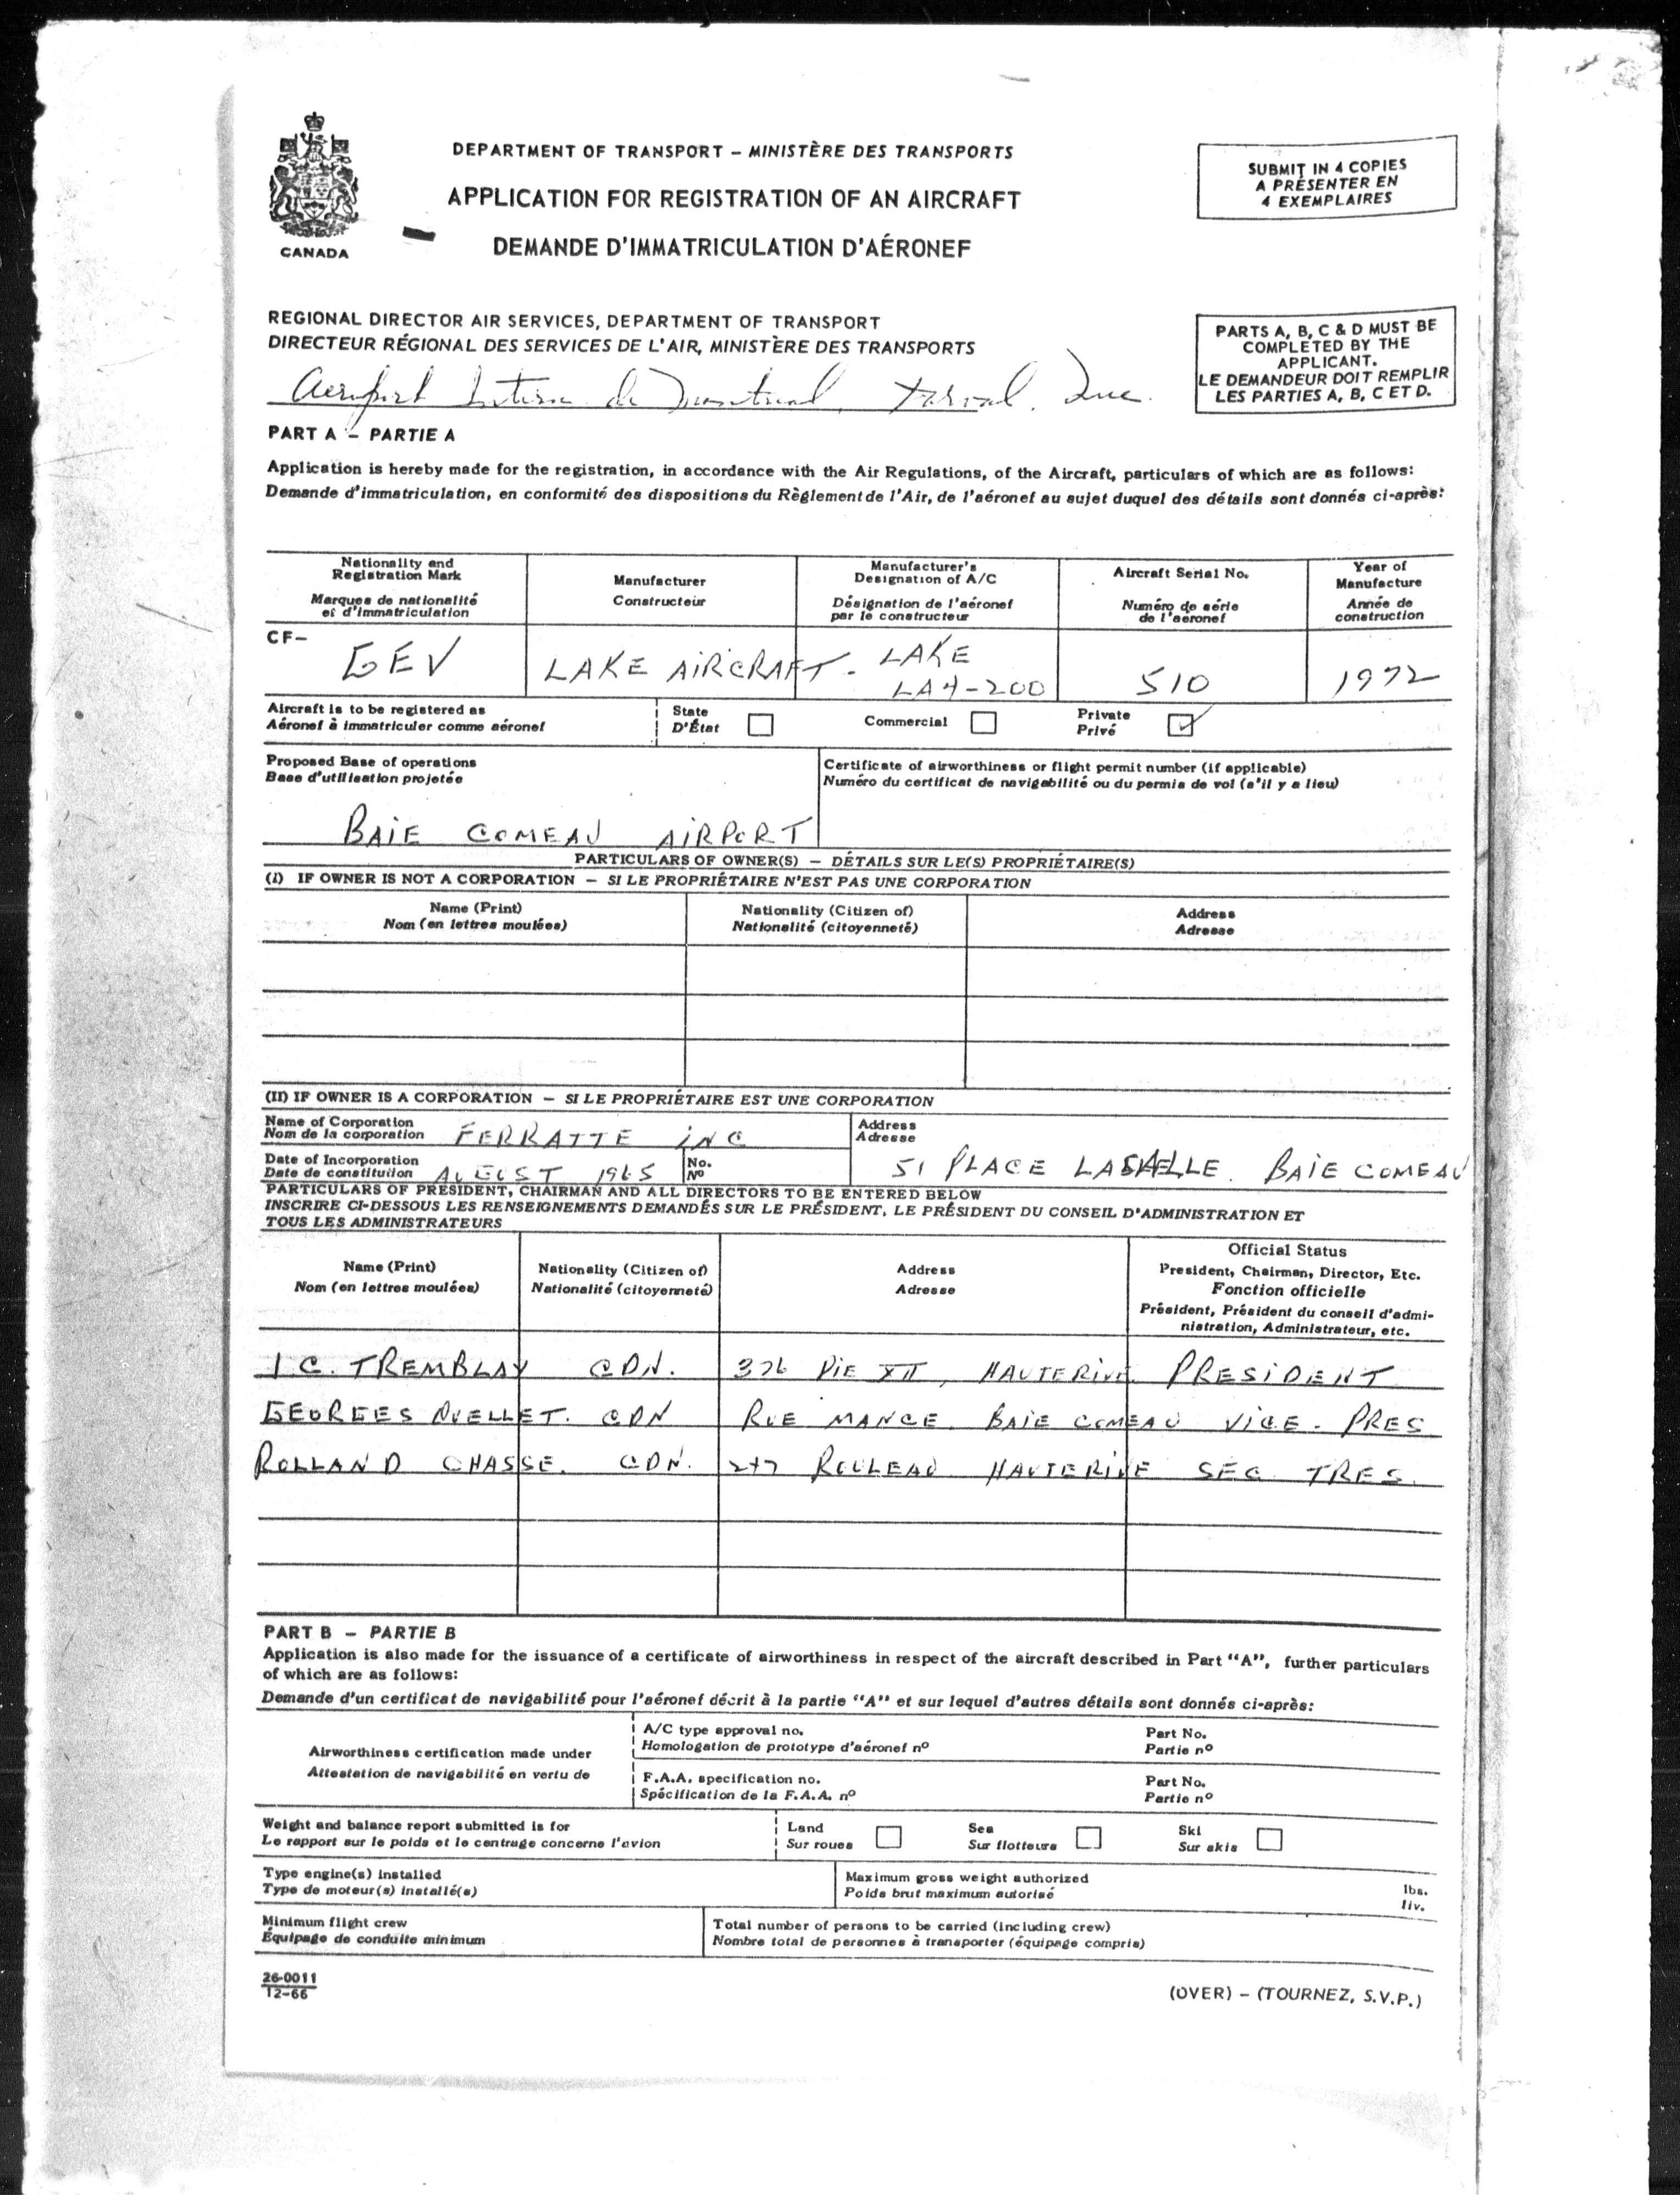 DEPARTMENT OF TRANSPORT – MINISTÈRE DES TRANSPORTS
APPLICATION FOR REGISTRATION OF AN AIRCRAFT
DEMANDE D'IMMATRICULATION D'AÉRONEF
CANADA
SUBMIT IN 4 COPIES
A PRÉSENTER EN
4 EXEMPLAIRES
REGIONAL DIRECTOR AIR SERVICES, DEPARTMENT OF TRANSPORT
DIRECTEUR RÉGIONAL DES SERVICES DE L'AIR, MINISTÈRE DES TRANSPORTS
PARTS A, B, C & D MUST BE
COMPLETED BY THE
APPLICANT.
LE DEMANDEUR DOIT REMPLIR
LES PARTIES A, B, C ET D.
Aeroport de Dorval, Que.
PART A – PARTIE A
Application is hereby made for the registration, in accordance with the Air Regulations, of the Aircraft, particulars of which are as follows:
Demande d'immatriculation, en conformité des dispositions du Règlement de l'Air, de l'aéronef au sujet duquel des détails sont donnés ci-après:
Nationality and
Registration Mark
Marques de nationalité
et d'immatriculation
Manufacturer
Constructeur
Manufacturer's
Designation of A/C
Désignation de l'aéronef
par le constructeur
Aircraft Serial No.
Numéro de série
de l'aeronef
Year of
Manufacture
Année de
construction
CF– GEV
LAKE AIRCRAFT.
LAKE
LA4-200
510
1972
Aircraft is to be registered as
Aéronef à immatriculer comme aéronef
State
D'État
Commercial
Private
Privé
Proposed Base of operations
Base d'utilisation projetée
BAIE COMEAU AIRPORT
Certificate of airworthiness or flight permit number (if applicable)
Numéro du certificat de navigabilité ou du permis de vol (s'il y a lieu)
PARTICULARS OF OWNER(S) – DÉTAILS SUR LE(S) PROPRIÉTAIRE(S)
(I) IF OWNER IS NOT A CORPORATION – SI LE PROPRIÉTAIRE N'EST PAS UNE CORPORATION
Name (Print)
Nom (en lettres moulées)
Nationality (Citizen of)
Nationalité (citoyenneté)
Address
Adresse
(II) IF OWNER IS A CORPORATION – SI LE PROPRIÉTAIRE EST UNE CORPORATION
Name of Corporation
Nom de la corporation FERRATTE INC
Address
Adresse
51 PLACE LASALLE. BAIE COMEAU
Date of Incorporation
Date de constitution AUGUST 1965
No.
Nº
PARTICULARS OF PRESIDENT, CHAIRMAN AND ALL DIRECTORS TO BE ENTERED BELOW
INSCRIRE CI-DESSOUS LES RENSEIGNEMENTS DEMANDÉS SUR LE PRÉSIDENT, LE PRÉSIDENT DU CONSEIL D'ADMINISTRATION ET
TOUS LES ADMINISTRATEURS
Name (Print)
Nom (en lettres moulées)
Nationality (Citizen of)
Nationalité (citoyenneté)
Address
Adresse
Official Status
President, Chairman, Director, Etc.
Fonction officielle
Président, Président du conseil d'admi-
nistration, Administrateur, etc.
TREMBLAY CDN. 376 PIE XII, HAUTERIVE PRESIDENT
GEORGES OUELLET. CDN RUE MANCE. BAIE COMEAU VICE. PRES
ROLLAND CHASSE. CDN. ROULEAU HAUTERIVE SEC TRES.
PART B – PARTIE B
Application is also made for the issuance of a certificate of airworthiness in respect of the aircraft described in Part "A", further particulars
of which are as follows:
Demande d'un certificat de navigabilité pour l'aéronef décrit à la partie "A" et sur lequel d'autres détails sont donnés ci-après:
Airworthiness certification made under
Attestation de navigabilité en vertu de
A/C type approval no.
Homologation de prototype d'aéronef nº
Part No.
Partie nº
F.A.A. specification no.
Spécification de la F.A.A. nº
Part No.
Partie nº
Weight and balance report submitted is for
Le rapport sur le poids et le centrage concerne l'avion
Land
Sur roues
Sea
Sur flotteurs
Ski
Sur skis
Type engine(s) installed
Type de moteur(s) installé(s)
Maximum gross weight authorized
Poids brut maximum autorisé
lbs.
liv.
Minimum flight crew
Équipage de conduite minimum
Total number of persons to be carried (including crew)
Nombre total de personnes à transporter (équipage compris)
26-0011
12-66
(OVER) – (TOURNEZ, S.V.P.)